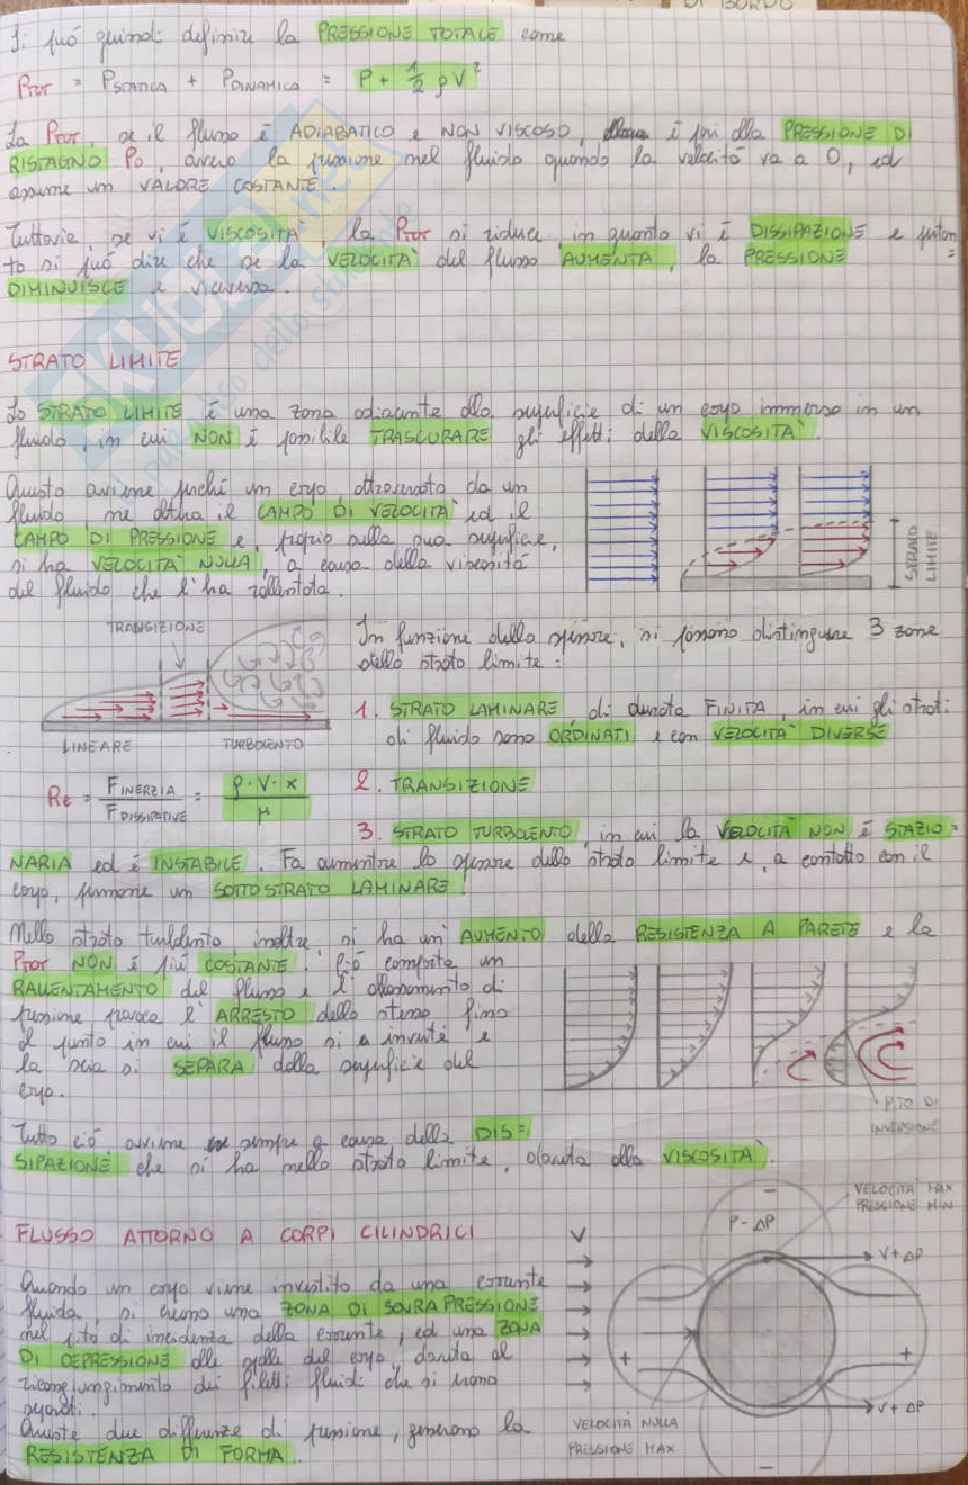 DI BORDO
Si può quindi definire la PRESSIONE TOTALE come
PTOT = PSTATICA + PDINAMICA = P + 1/2 ρV²
La PTOT, se il flusso è ADIABATICO e NON VISCOSO, è pari alla PRESSIONE DI
RISTAGNO P0, ovvero la pressione nel fluido quando la velocità va a 0, ed
assume un VALORE COSTANTE.
Tuttavia, se vi è VISCOSITÀ, la PTOT si riduce, in quanto vi è DISSIPAZIONE e pertan=
to si può dire che se la VELOCITÀ del flusso AUMENTA, la PRESSIONE
DIMINUISCE e viceversa.
STRATO LIMITE
Lo STRATO LIMITE è una zona adiacente alla superficie di un corpo immerso in un
fluido, in cui NON è possibile TRASCURARE gli effetti della VISCOSITÀ.
Questo avviene perché un corpo attraversato da un
fluido, ne altera il CAMPO DI VELOCITÀ ed il
CAMPO DI PRESSIONE e, proprio sulla sua superficie,
si ha VELOCITÀ NULLA, a causa della viscosità
del fluido che l'ha rallentata.
STRATO
LIMITE
TRANSIZIONE
LINEARE TURBOLENTO
In funzione dello spessore, si possono distinguere 3 zone
dello strato limite:
1. STRATO LAMINARE, di durata FINITA, in cui gli strati
di fluido sono ORDINATI e con VELOCITÀ DIVERSE
Re = FINERZIA / FDISSIPATIVE = ρ·V·x / μ
2. TRANSIZIONE
3. STRATO TURBOLENTO, in cui la VELOCITÀ NON È STAZIO=
NARIA ed è INSTABILE. Fa aumentare lo spessore dello strato limite e, a contatto con il
corpo, permane un SOTTOSTRATO LAMINARE.
Nello strato turbolento, inoltre si ha un AUMENTO della RESISTENZA A PARETE e la
PTOT NON è più COSTANTE. Ciò comporta un
RALLENTAMENTO del flusso e l'abbassamento di
pressione provoca l'ARRESTO dello stesso fino
al punto in cui il flusso si inverte e
la scia si SEPARA dalla superficie del
corpo.
PTO DI
INVERSIONE
Tutto ciò avviene sempre a causa della DIS=
SIPAZIONE che si ha nello strato limite, dovuta alla VISCOSITÀ.
FLUSSO ATTORNO A CORPI CILINDRICI
Quando un corpo viene investito da una corrente
fluida, si creano una ZONA DI SOVRAPRESSIONE
nel pto di incidenza della corrente, ed una ZONA
DI DEPRESSIONE alle spalle del corpo, dovuta al
ricongiungimento dei filetti fluidi che si erano
separati.
Queste due differenze di pressione, generano la
RESISTENZA DI FORMA.
V
-
P-ΔP
VELOCITÀ MAX
PRESSIONE MIN
V+ΔP
+
+
V+ΔP
VELOCITÀ NULLA
PRESSIONE MAX
-